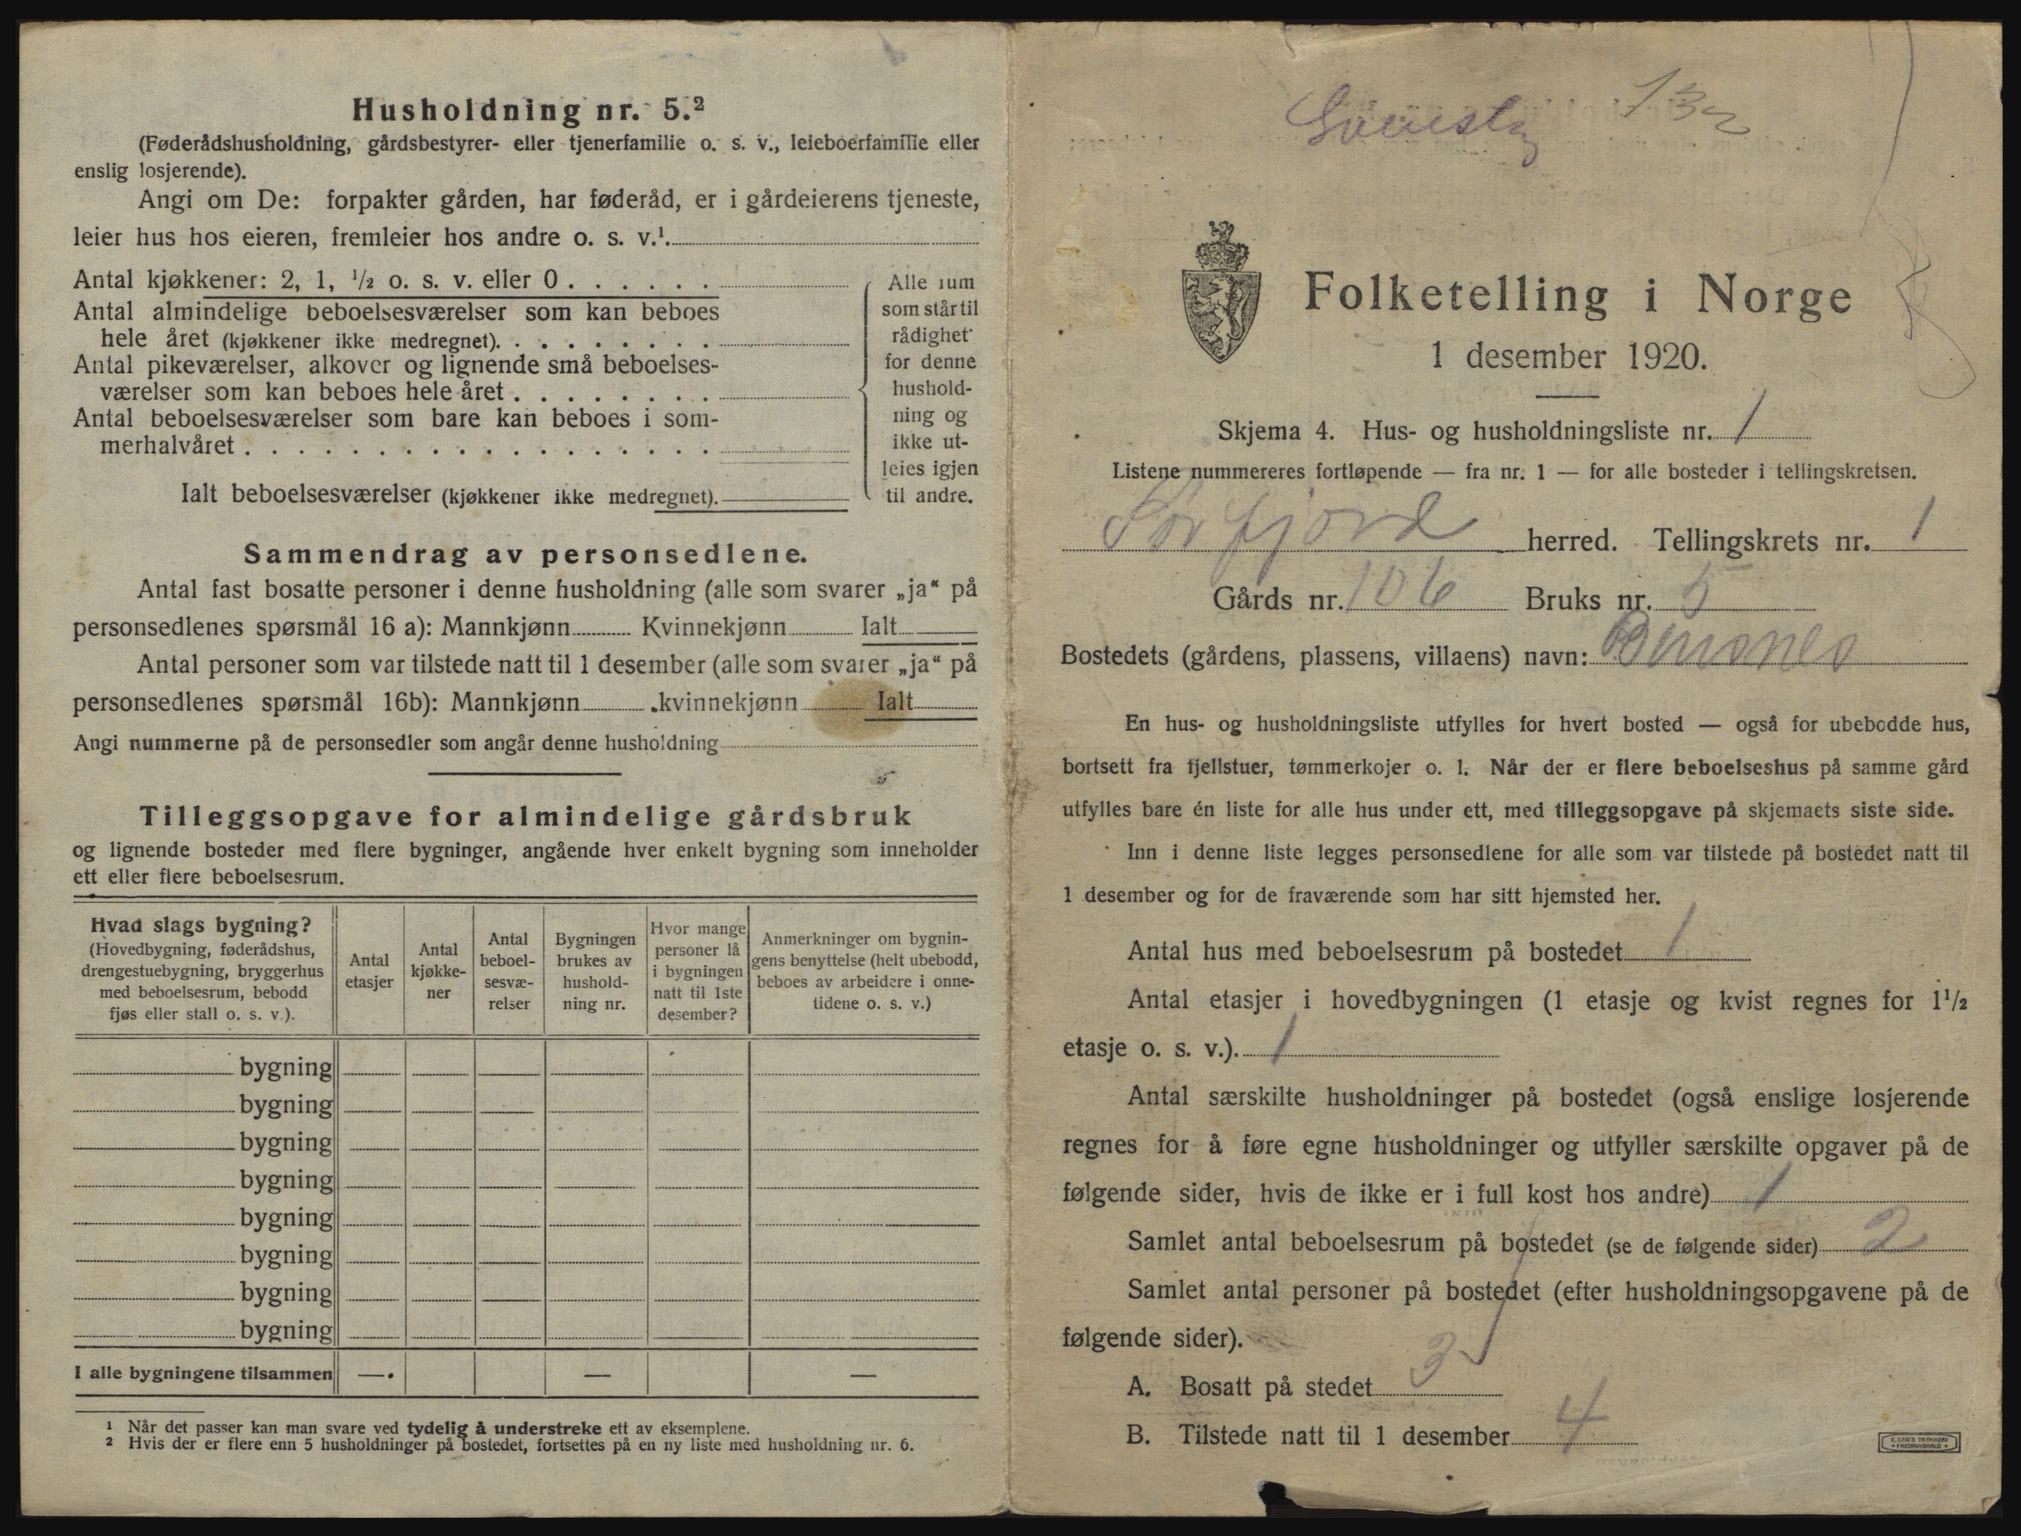 Husholdning nr. 5.²
(Føderådshusholdning, gårdsbestyrer- eller tjenerfamilie o. s. v., leieboerfamilie eller
enslig losjerende).
Angi om De: forpakter gården, har føderåd, er i gårdeierens tjeneste,
leier hus hos eieren, fremleier hos andre o. s. v.¹
Antal kjøkkener: 2, 1, ½ o. s. v. eller 0
Antal almindelige beboelsesværelser som kan beboes
hele året (kjøkkener ikke medregnet)
Antal pikeværelser, alkover og lignende små beboelses-
værelser som kan beboes hele året
Antal beboelsesværelser som bare kan beboes i som-
merhalvåret
Ialt beboelsesværelser (kjøkkener ikke medregnet)
Alle rum
som står til
rådighet
for denne
hushold-
ning og
ikke ut-
leies igjen
til andre.
Sammendrag av personsedlene.
Antal fast bosatte personer i denne husholdning (alle som svarer „ja“ på
personsedlenes spørsmål 16 a): Mannkjønn Kvinnekjønn Ialt
Antal personer som var tilstede natt til 1 desember (alle som svarer „ja“ på
personsedlenes spørsmål 16b): Mannkjønn kvinnekjønn Ialt
Angi nummerne på de personsedler som angår denne husholdning
Tilleggsopgave for almindelige gårdsbruk
og lignende bosteder med flere bygninger, angående hver enkelt bygning som inneholder
ett eller flere beboelsesrum.
Hvad slags bygning?
(Hovedbygning, føderådshus,
drengestuebygning, bryggerhus
med beboelsesrum, bebodd
fjøs eller stall o. s. v.).
Antal
etasjer
Antal
kjøkke-
ner
Antal
beboel-
sesvæ-
relser
Bygningen
brukes av
hushold-
ning nr.
Hvor mange
personer lå
i bygningen
natt til 1ste
desember?
Anmerkninger om bygnin-
gens benyttelse (helt ubebodd,
beboes av arbeidere i onne-
tidene o. s. v.)
bygning
bygning
bygning
bygning
bygning
bygning
bygning
bygning
I alle bygningene tilsammen — — —
¹ Når det passer kan man svare ved tydelig å understreke ett av eksemplene.
² Hvis der er flere enn 5 husholdninger på bostedet, fortsettes på en ny liste med husholdning nr. 6.
Folketelling i Norge
1 desember 1920.
Skjema 4. Hus- og husholdningsliste nr. 1
Listene nummereres fortløpende — fra nr. 1 — for alle bosteder i tellingskretsen.
Sørfjord herred. Tellingskrets nr. 1
Gårds nr. 106 Bruks nr. 5
Bostedets (gårdens, plassens, villaens) navn: Bensnes
En hus- og husholdningsliste utfylles for hvert bosted — også for ubebodde hus,
bortsett fra fjellstuer, tømmerkojer o. l. Når der er flere beboelseshus på samme gård
utfylles bare én liste for alle hus under ett, med tilleggsopgave på skjemaets siste side.
Inn i denne liste legges personsedlene for alle som var tilstede på bostedet natt til
1 desember og for de fraværende som har sitt hjemsted her.
Antal hus med beboelsesrum på bostedet 1
Antal etasjer i hovedbygningen (1 etasje og kvist regnes for 1½
etasje o. s. v.). 1
Antal særskilte husholdninger på bostedet (også enslige losjerende
regnes for å føre egne husholdninger og utfyller særskilte opgaver på de
følgende sider, hvis de ikke er i full kost hos andre) 1
Samlet antal beboelsesrum på bostedet (se de følgende sider) 2
Samlet antal personer på bostedet (efter husholdningsopgavene på de
følgende sider).
A. Bosatt på stedet 3
B. Tilstede natt til 1 desember 4